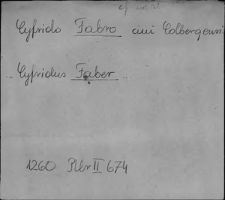 Cyfrido Fabro civi Colbergensi
Cyfridus Faber
1260 PUbr II 674